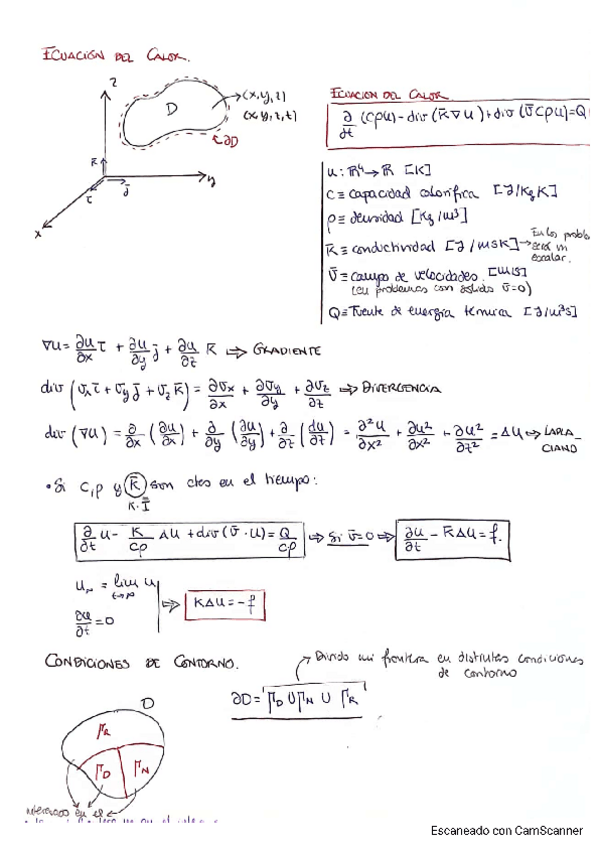 ECUACIÓN DEL CALOR.
z
D
(x,y,z)
(x,y,z,t)
∂D
k̄
ī
j̄
y
x
ECUACION DEL CALOR
∂/∂t (cρu) - div (k̄∇u) + div (v̄cρu) = Q
u: ℝ⁴ → ℝ [K]
c ≡ capacidad calorífica [J/Kg K]
ρ ≡ densidad [Kg/m³]
k̄ ≡ conductividad [J/msK] → En los proble
será un
escalar.
v̄ ≡ campo de velocidades. [m/s]
(en problemas con sólido v̄=0)
Q ≡ Fuente de energía térmica [J/m³s]
∇u = ∂u/∂x ī + ∂u/∂y j̄ + ∂u/∂z k̄ ⇒ GRADIENTE
div (vₓ ī + v_y j̄ + v_z k̄) = ∂vₓ/∂x + ∂v_y/∂y + ∂v_z/∂z ⇒ DIVERGENCIA
div (∇u) = ∂/∂x (∂u/∂x) + ∂/∂y (∂u/∂y) + ∂/∂z (du/dz) = ∂²u/∂x² + ∂u²/∂x² + ∂u²/∂z² = Δu ⇒ LAPLA_
CIANO
• Si c,ρ y k̄ son ctes en el tiempo:
k·Ī
∂/∂t u - k/cρ Δu + div (v̄·u) = Q/cρ ⇒ Si v̄=0 ⇒ ∂u/∂t - k̄Δu = f.
u∞ = lim u
t→∞
∂u/∂t = 0
⇒ kΔu = -f
CONDICIONES DE CONTORNO.
Divido mi frontera en distintas condiciones
de contorno
∂D = Γ_D ∪ Γ_N ∪ Γ_R
D
Γ_R
Γ_D
Γ_N
en el
Escaneado con CamScanner